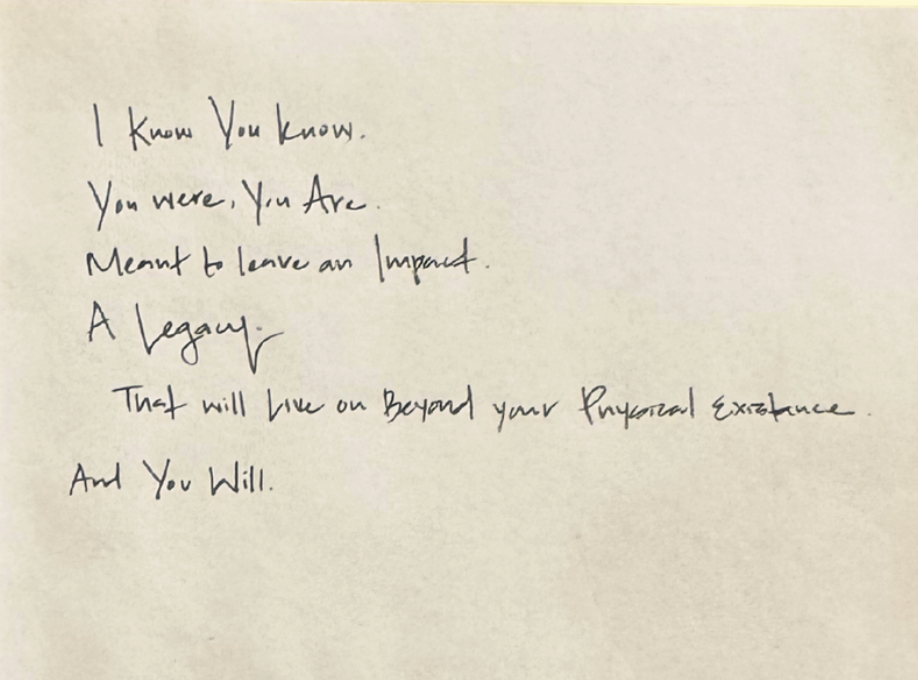 I Know You Know.
You were, You Are.
Meant to leave an Impact.
A Legacy.
That will Live on Beyond your Physical Existance.
And You Will.